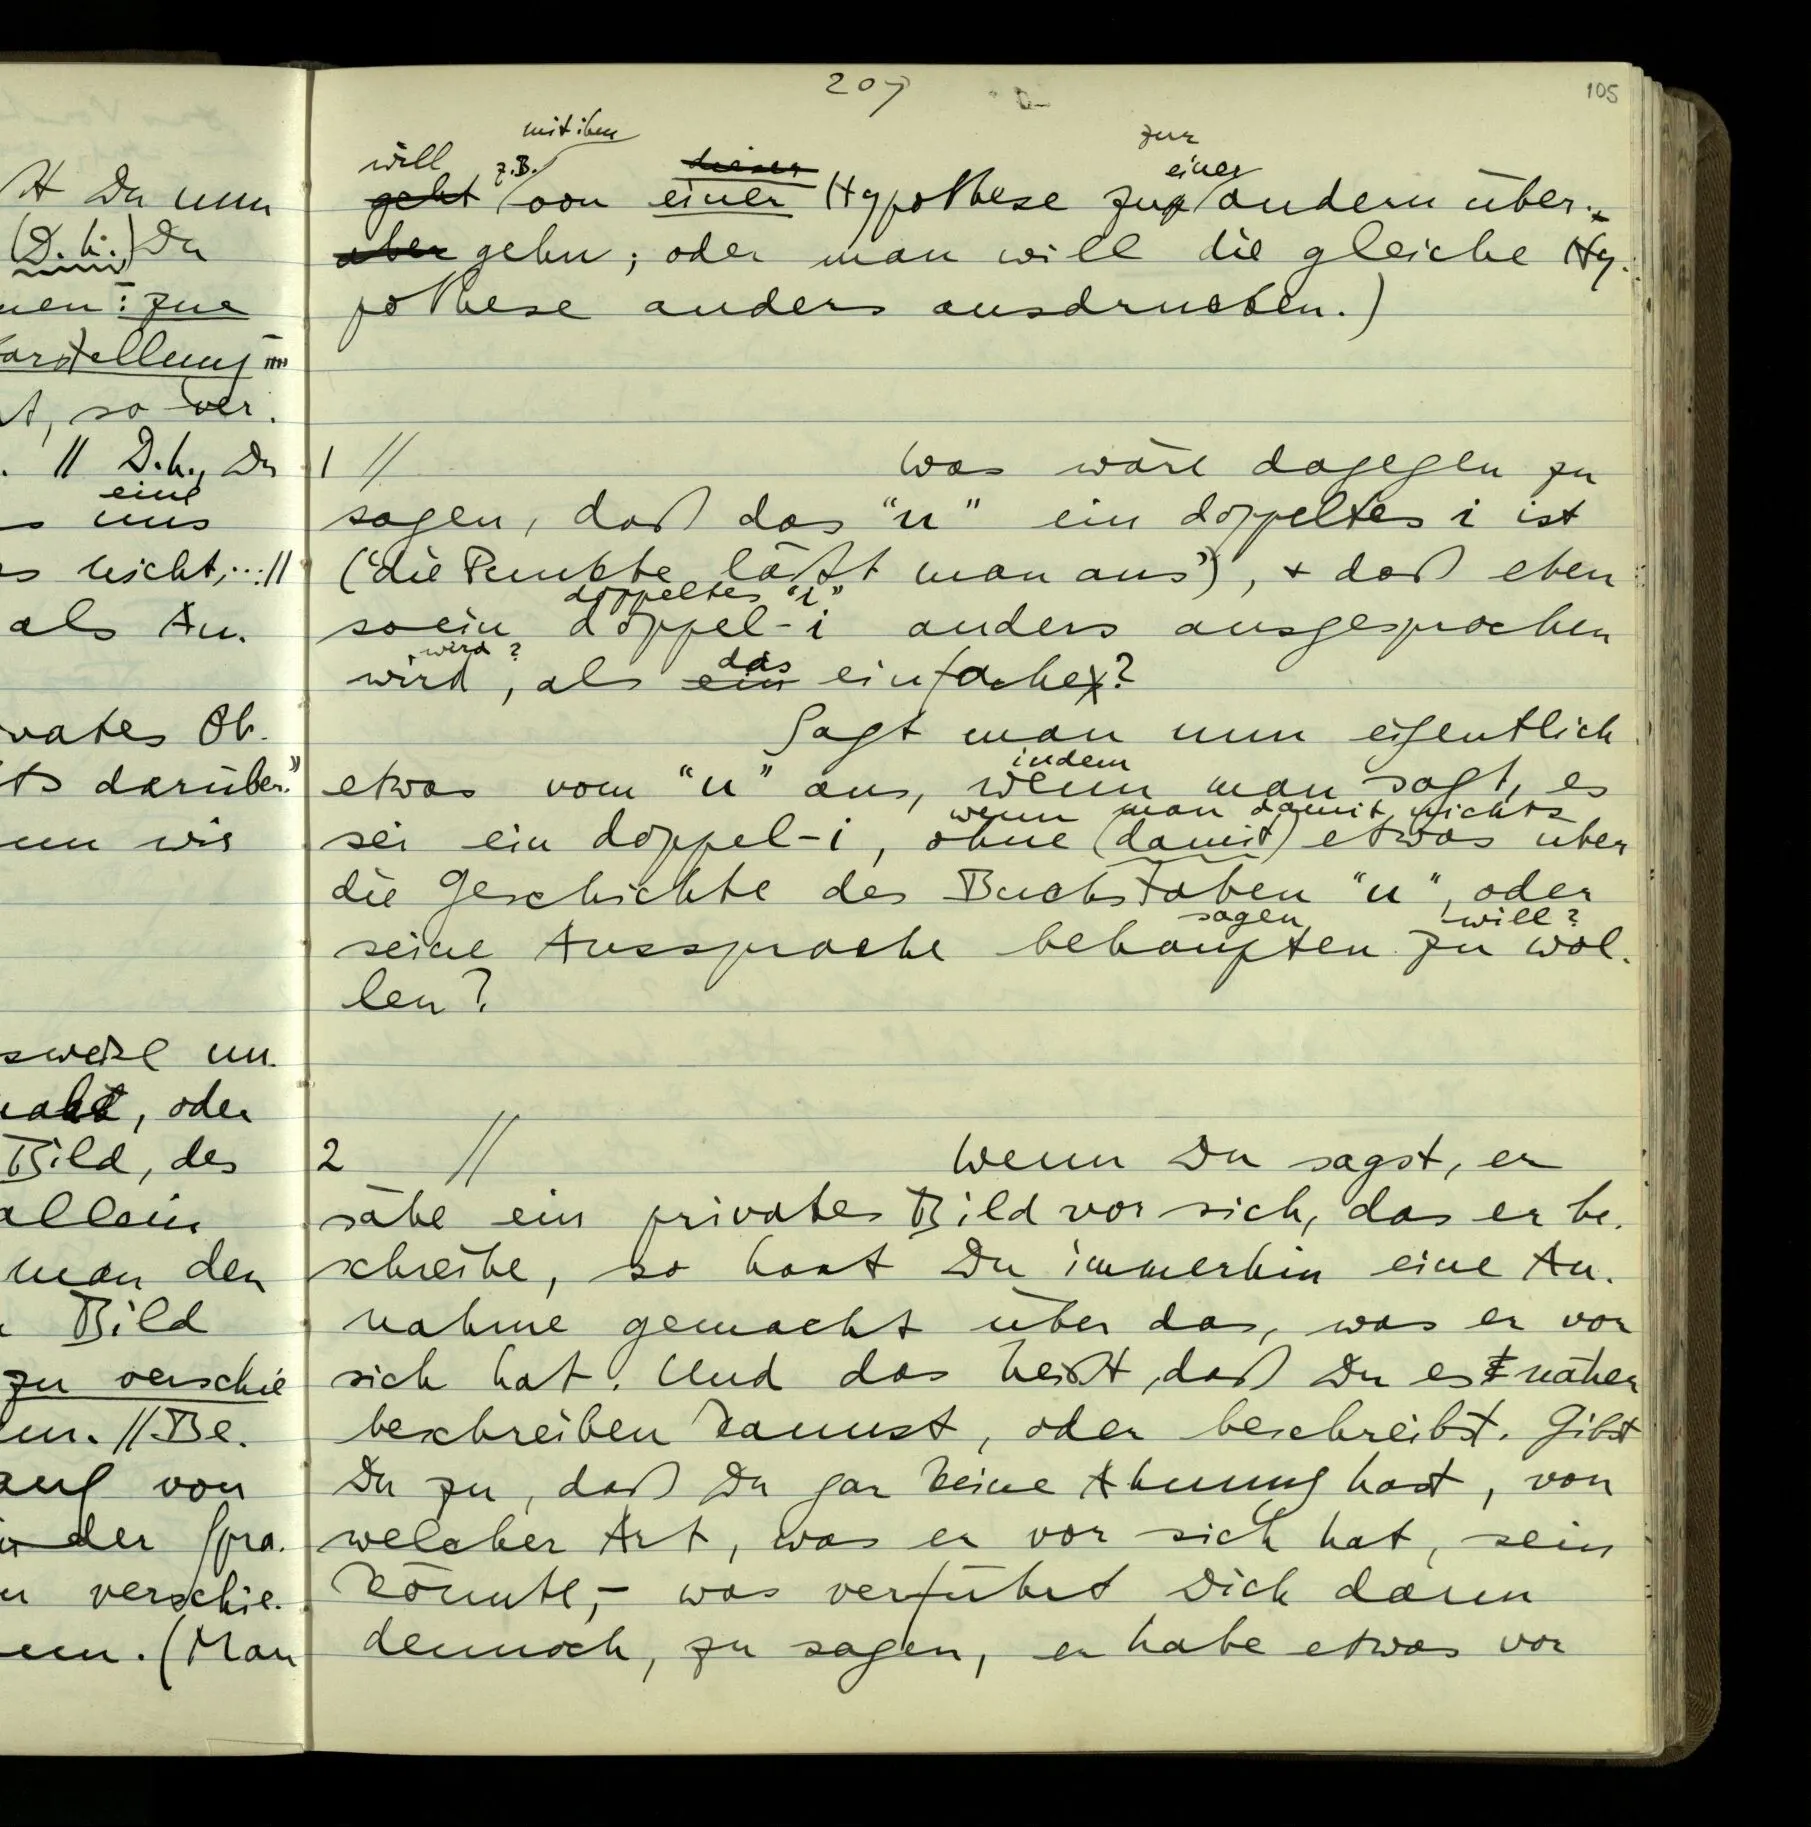 t Du nun
(D.h.) Du
nen: zur
arstellung
t, so ver-
. // D.h., Du
eine
s uns
s nicht; ... //
als An-
vates Ob-
ts darüber."
nn wir
sweise un-
oder
Bild, des
allein
man den
Bild
zu verschie
en. // Be-
auf von
der Spra-
n verschie-
en. (Man
207
105
mit ihm
zur
will z.B. dieser einer
geht von einer Hypothese zur andern über-
aber gehn; oder man will die gleiche Hy-
pothese anders ausdrucken.)
1 // Was wäre dagegen zu
sagen, daß das "u" ein doppeltes i ist
("die Punkte läßt man aus"), + daß eben
doppeltes "i"
so ein doppel-i anders ausgesprochen
wird? das
wird, als ein einfaches?
Sagt man nun eigentlich
indem
etwas vom "u" aus, wenn man sagt, es
wenn man damit nichts
sei ein doppel-i, ohne (damit) etwas über
die Geschichte des Buchstaben "u", oder
sagen will?
seine Aussprache behaupten zu wol-
len?
2 // Wenn Du sagst, er
sähe ein privates Bild vor sich, das er be-
schreibe, so hast Du immerhin eine An-
nahme gemacht über das, was er vor
sich hat. Und das heißt, daß Du es näher
beschreiben kannst, oder beschreibst. Gibst
Du zu, daß Du gar keine Ahnung hast, von
welcher Art, was er vor sich hat, sein
könnte, – was verführt Dich dann
dennoch, zu sagen, er habe etwas vor